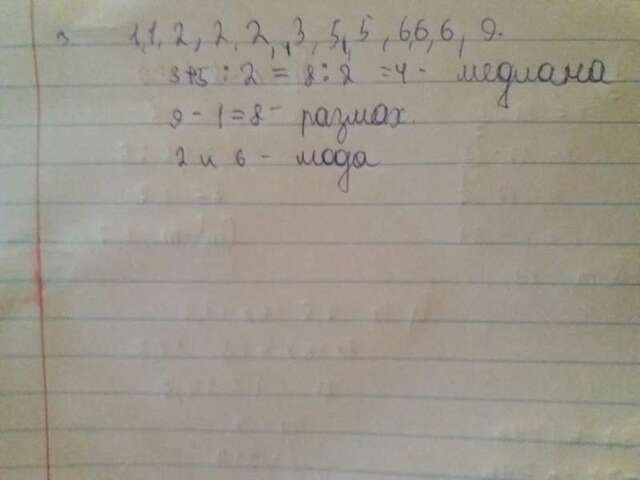 3. 1,1,2,2,2,3,5,5,6,6,6,9.
3+5:2=8:2=4- медиана
9-1=8- размах.
2 и 6 - мода